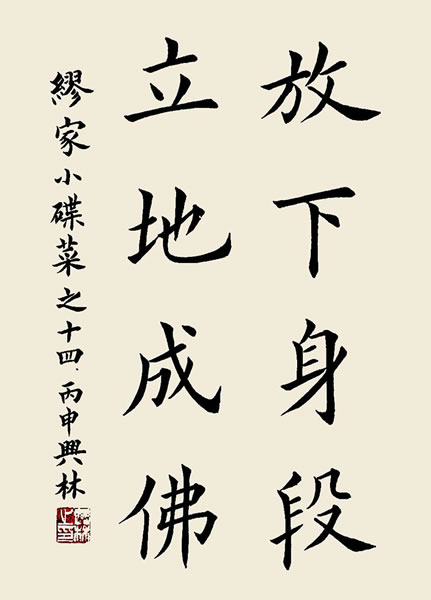 放下身段
立地成佛
繆家小碟菜之十四.丙申興林